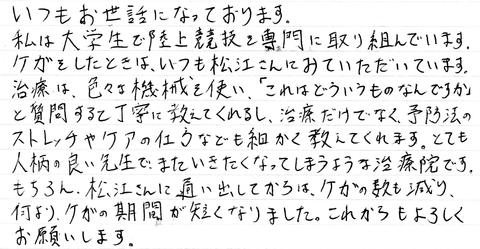 いつもお世話になっております。
私は大学生で陸上競技を専門に取り組んでいます。
ケガをしたときは、いつも松江さんにみていただいています。
治療は、色々な機械を使い、「これはどういうものなんですか」
と質問すると丁寧に教えてくれるし、治療だけでなく、予防法の
ストレッチやケアの仕方なども細かく教えてくれます。とても
人柄の良い先生で、またいきたくなってしまうような治療院です。
もちろん、松江さんに通い出してからは、ケガの数も減り、
何より、ケガの期間が短くなりました。これからもよろしく
お願いします。